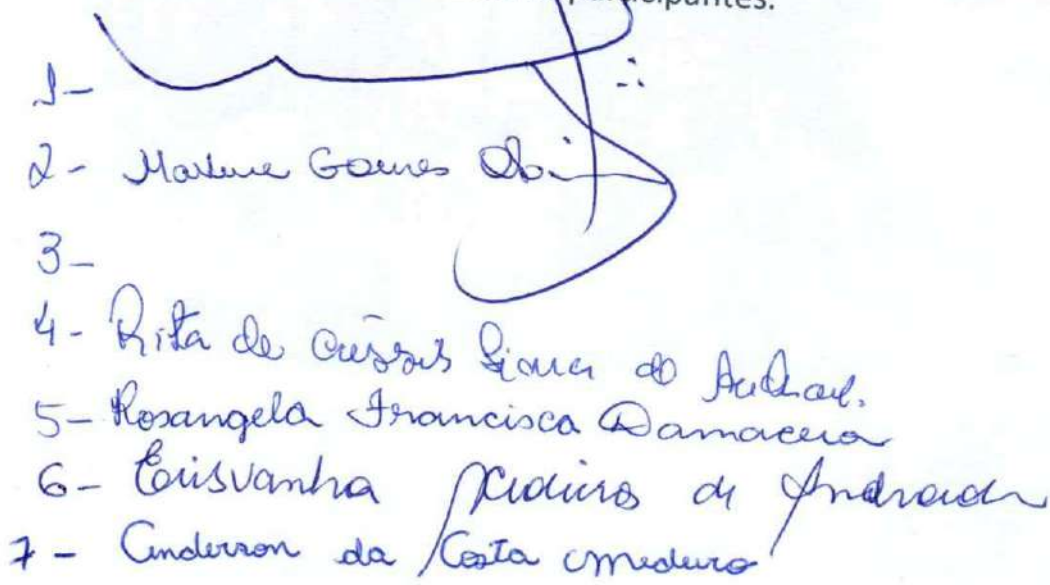 participantes.
1-
2- Marlene Gomes
3-
4- Rita de Cássis Lima de Andrad.
5- Rosangela Francisca Damacena
6- Erisvanha Medeiros de Andrade
7- Anderson da Costa Medeiro